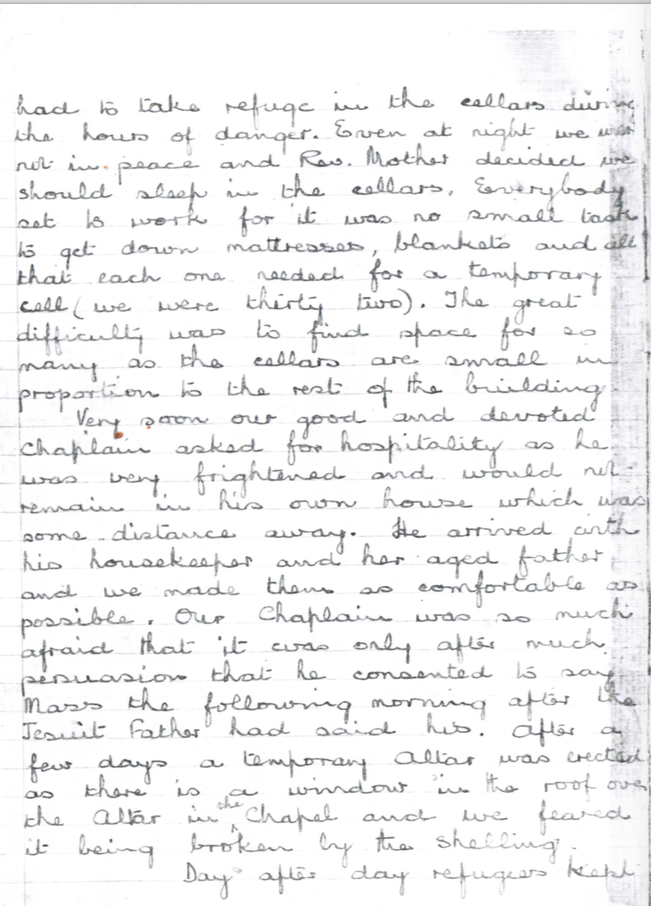 had to take refuge in the cellars during
the hours of danger. Even at night we were
not in peace and Rev. Mother decided we
should sleep in the cellars. Everybody
set to work for it was no small task
to get down mattresses, blankets and all
that each one needed for a temporary
cell (we were thirty two). The great
difficulty was to find space for so
many as the cellars are small in
proportion to the rest of the building.
Very soon our good and devoted
Chaplain asked for hospitality as he
was very frightened and would not
remain in his own house which was
some distance away. He arrived with
his housekeeper and her aged father
and we made them as comfortable as
possible. Our Chaplain was so much
afraid that it was only after much
persuasion that he consented to say
Mass the following morning after the
Jesuit Father had said his. After a
few days a temporary Altar was erected
as there is a window in the roof over
the Altar in the Chapel and we feared
it being broken by the shelling.
Day after day refugees kept